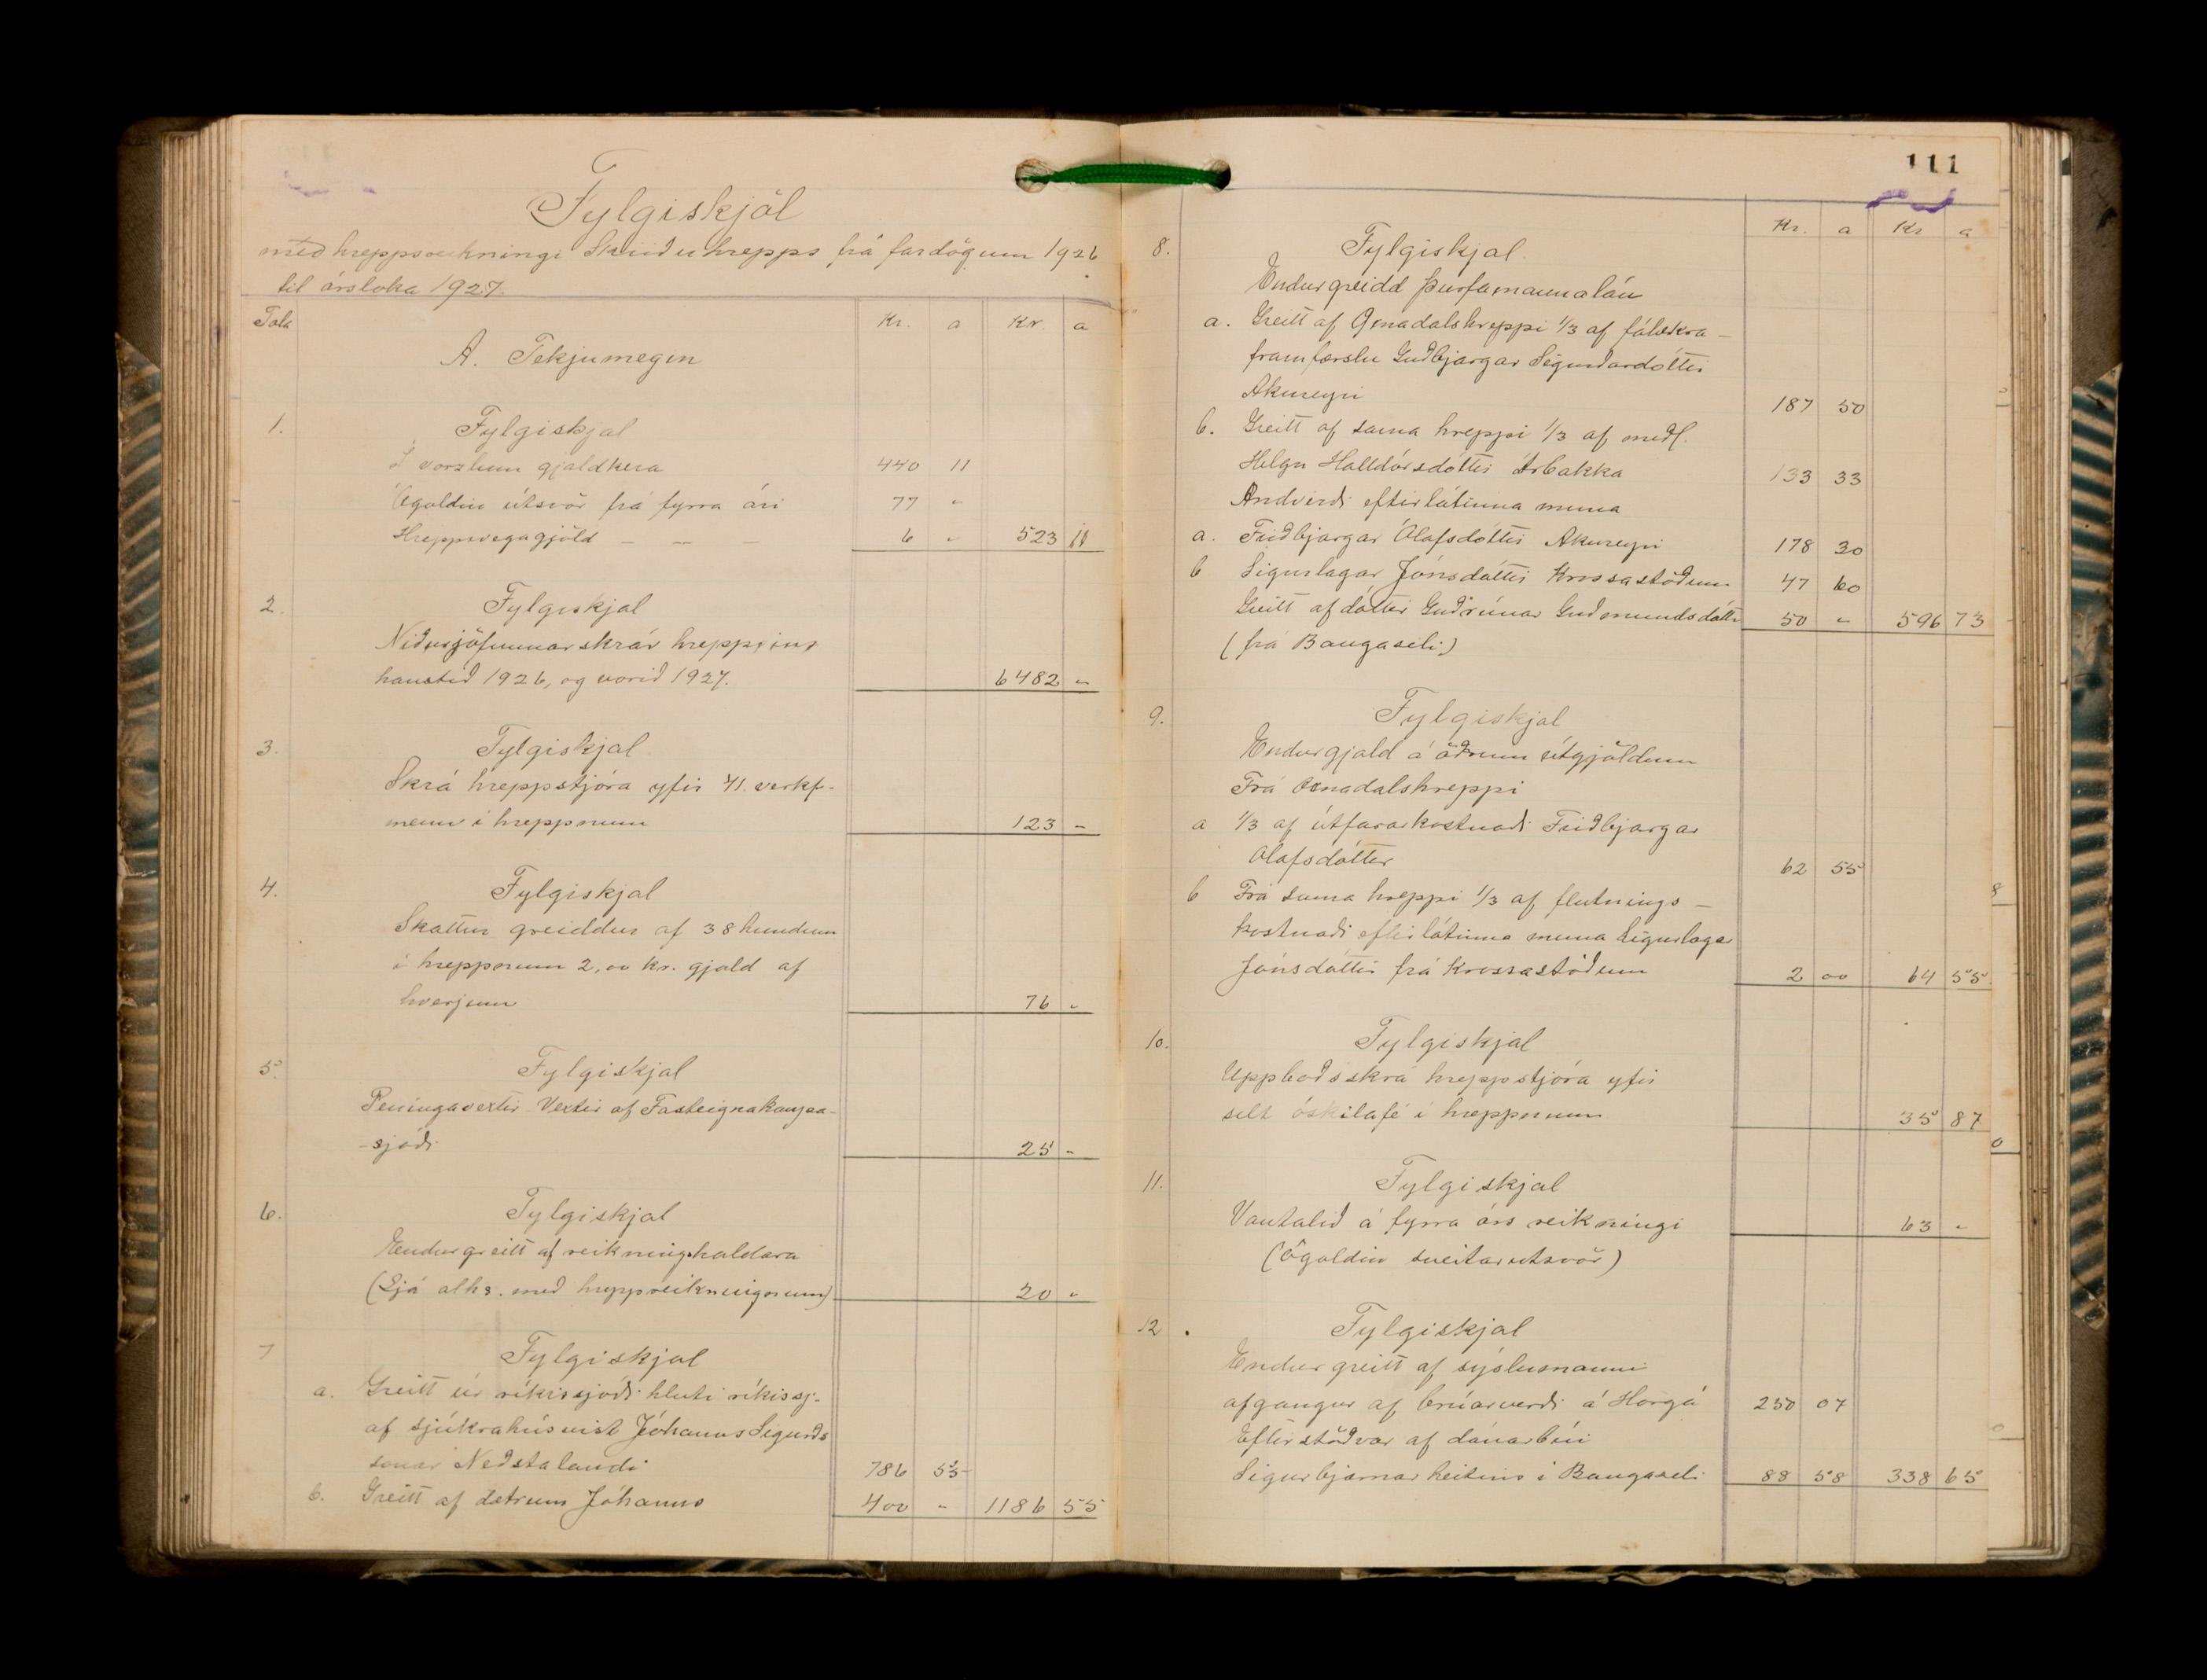 Fylgiskjöl
með hreppsreikningi Skriðuhrepps frá fardögum 1926
til ársloka 1927.
Tala Kr. a Kr. a
A. Tekjumegin
1. Fylgiskjal
Í vorzlum gjaldkera 440 11
Ógoldin útsvör frá fyrra ári 77 "
Hreppsvegagjöld — — — 6 " 523 11
2. Fylgiskjal
Niðurjöfnunarskrár hreppsins
haustið 1926, og vorið 1927. 6482 "
3. Fylgiskjal
Skrá hreppstjóra yfir 41. verkf-
menn í hreppnum 123 "
4. Fylgiskjal
Skattur greiddur af 38 hundum
í hreppnum 2,00 kr. gjald af
hverjum 76 "
5. Fylgiskjal
Peningavextir Vextir af Fasteignakaupa-
-sjóði 25 "
6. Fylgiskjal
Endurgreitt af reikningshaldara
(Sjá alhs. með hreppsreikningnum) 20 "
7 Fylgiskjal
a. Greitt úr ríkissjóði hluti ríkissj-
af sjúkrahúsvist Jóhanns Sigurðs
sonar Neðstalandi 786 55
b. Greitt af dætrum Jóhanns 400 " 1186 55
111
Kr. a Kr a
8. Fylgiskjal
Endurgreidd þurfamannalán
a. Greitt af Öxnadalshreppi 1/3 af fátækra-
framfærslu Guðbjargar Sigurðardóttir
Akureyri 187 50
b. Greitt af sama hreppi 1/3 af meðl.
Helgu Halldórsdóttir Árbakka 133 33
Andvirði eftirlátinna muna
a. Friðbjargar Ólafsdóttir Akureyri 178 30
b Sigurlagar Jónsdóttir Krossastöðum 47 60
Greitt af dóttir Guðrúnar Guðmundsdóttr 50 " 596 73
(frá Baugaseli)
9. Fylgiskjal
Endurgjald á öðrum útgjöldum
Frá Öxnadalshreppi
a 1/3 af útfararkostnaði Friðbjargar
Ólafsdóttir 62 55
b Frá sama hreppi 1/3 af flutnings-
kostnaði eftirlátinna muna Sigurlagar
Jónsdóttir frá Krossastöðum 2 00 64 55
10. Fylgiskjal
Uppboðsskrá hreppstjóra yfir
selt óskilafé í hreppnum 35 87
11. Fylgiskjal
Vantalið á fyrra árs reikningi 63 "
(Ógoldin sveitarutsvör)
12. Fylgiskjal
Endurgreitt af sýslumanni
afgangur af brúarverði á Hörgá 250 07
Eftirstöðvar af dánarbúi
Sigurbjarnar heitins í Baugaseli 88 58 338 65